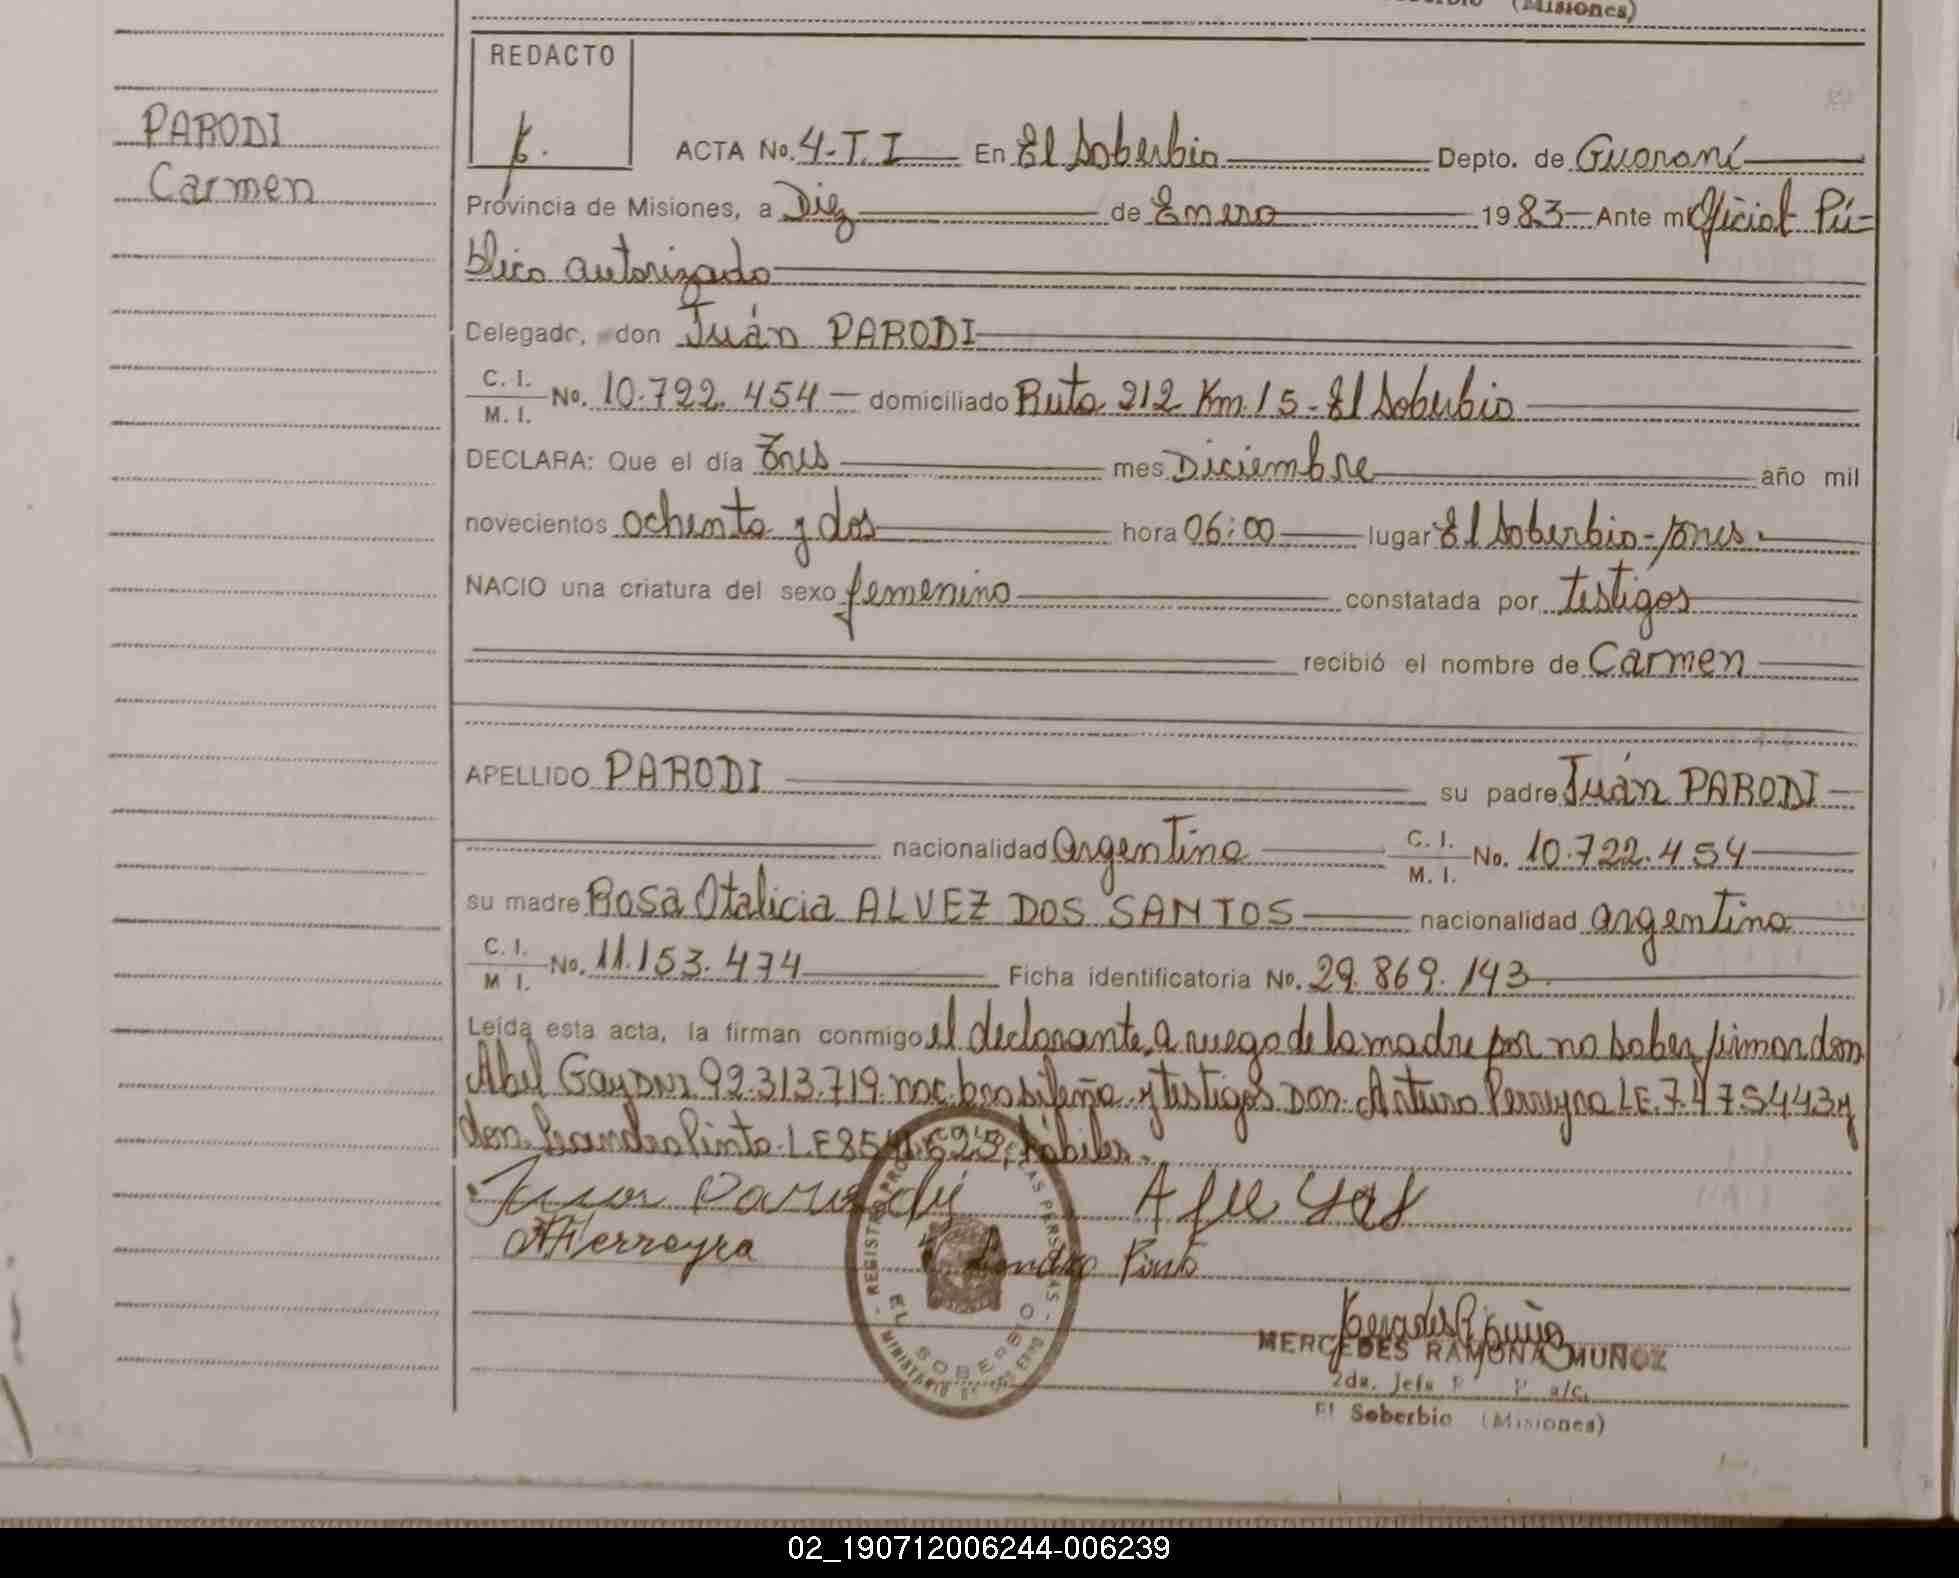 (Misiones)
REDACTO
PARODI
Carmen
ACTA No. 4-T.I En El Soberbio Depto. de Guaraní
Provincia de Misiones, a Diez de Enero 1983 Ante mi Oficial Pú=
blico autorizado
Delegado, don Juán PARODI
C. I.
M. I. No. 10.722.454 domiciliado Ruta 212 Km.15-El Soberbio
DECLARA: Que el día tres mes Diciembre año mil
novecientos ochenta y dos hora 06:00 lugar El Soberbio-
NACIO una criatura del sexo femenino constatada por testigos
recibió el nombre de Carmen
APELLIDO PARODI su padre Juán PARODI
nacionalidad Argentina C. I.
M. I. No. 10.722.454
su madre Rosa Otalicia ALVEZ DOS SANTOS nacionalidad argentina
C. I.
M I. No. 11.153.474 Ficha identificatoria No. 29.869.143
Leída esta acta, la firman conmigo el declarante, a ruego de la madre por no saber firmar don
Abel 92.313.719 nac. brasileña y testigos Don Arturo Perreyra LE.7.475443 y
don Leandro Pinto L.E 623, hábiles.
Pierreyra
Pinto
REGISTRO PROV. DE LAS PERSONAS
EL SOBERBIO
MINISTERIO DE GOBIERNO
MERCEDES RAMONA MUÑOZ
2da. Jefa a/c.
El Soberbio (Misiones)
02_190712006244-006239